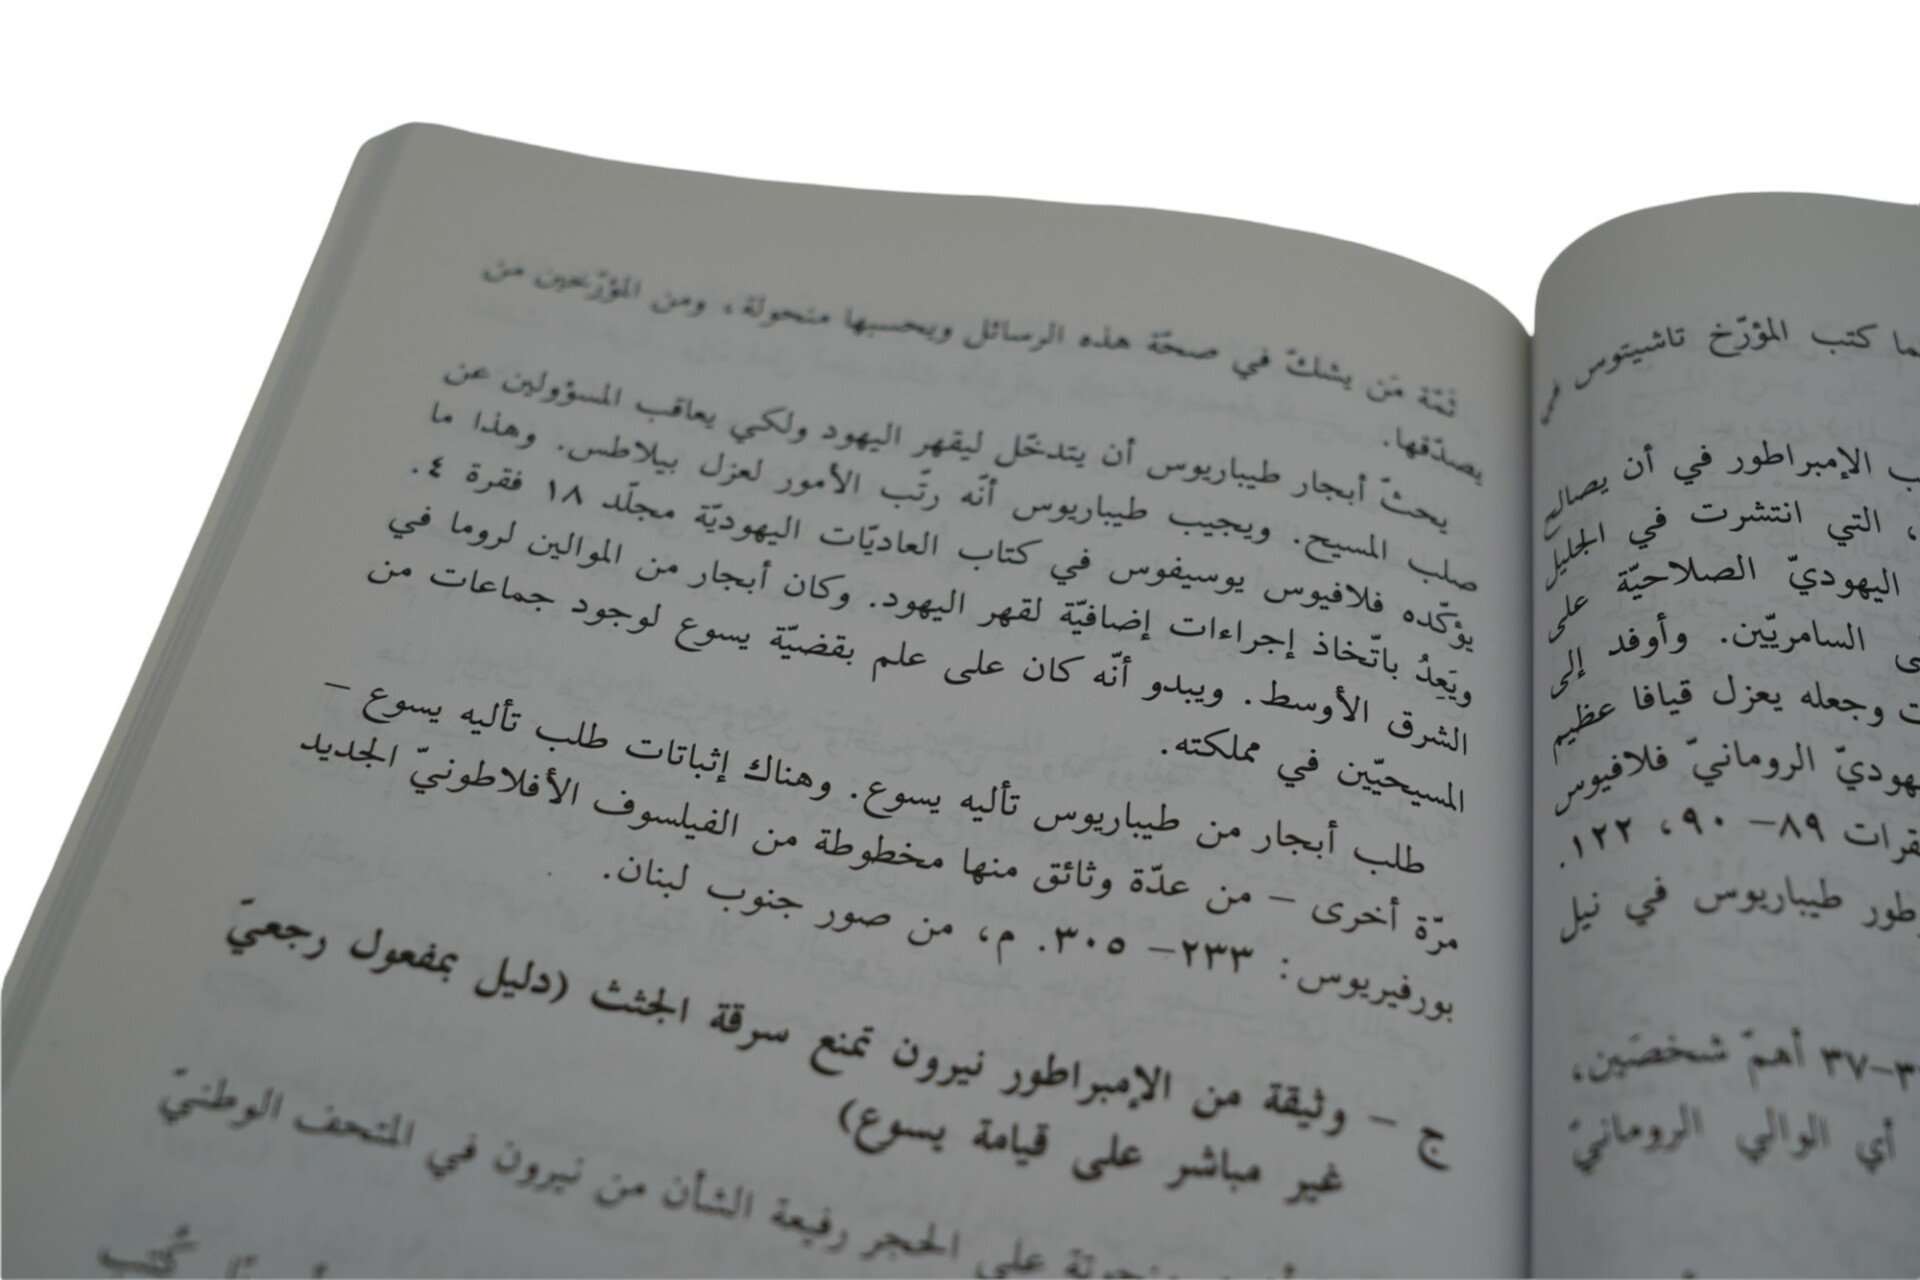 ما كتب المؤرّخ تاشيتوس
الإمبراطور في أن يصالح
، التي انتشرت في الجليل
اليهوديّ الصلاحيّة على
السامريّين. وأوفد إلى
وجعله يعزل قيافا عظيم
الرومانيّ فلافيوس
٨٩– ٩٠، ١٢٢.
طيباريوس في نيل
–٣٧ أهمّ شخصَين،
أي الوالي الرومانيّ
ثمّة مَن يشكّ في صحّة هذه الرسائل ويحسبها منحولة، ومن المؤرّخين من
يصدّقها.
يحثّ أبجار طيباريوس أن يتدخّل ليقهر اليهود ولكي يعاقب المسؤولين عن
صلب المسيح. ويجيب طيباريوس أنّه رتّب الأمور لعزل بيلاطس. وهذا ما
يؤكّده فلافيوس يوسيفوس في كتاب العاديّات اليهوديّة مجلّد ١٨ فقرة ٤.
ويَعِدُ باتّخاذ إجراءات إضافيّة لقهر اليهود. وكان أبجار من الموالين لروما في
الشرق الأوسط. ويبدو أنّه كان على علم بقضيّة يسوع لوجود جماعات من
المسيحيّين في مملكته.
طلب أبجار من طيباريوس تأليه يسوع. وهناك إثباتات طلب تأليه يسوع –
مرّة أخرى – من عدّة وثائق منها مخطوطة من الفيلسوف الأفلاطونيّ الجديد
بورفيريوس: ٢٣٣– ٣٠٥. م، من صور جنوب لبنان.
ج – وثيقة من الإمبراطور نيرون تمنع سرقة الجثث (دليل بمفعول رجعيّ
غير مباشر على قيامة يسوع)
على الحجر رفيعة الشأن من نيرون في المتحف الوطنيّ
كُتب